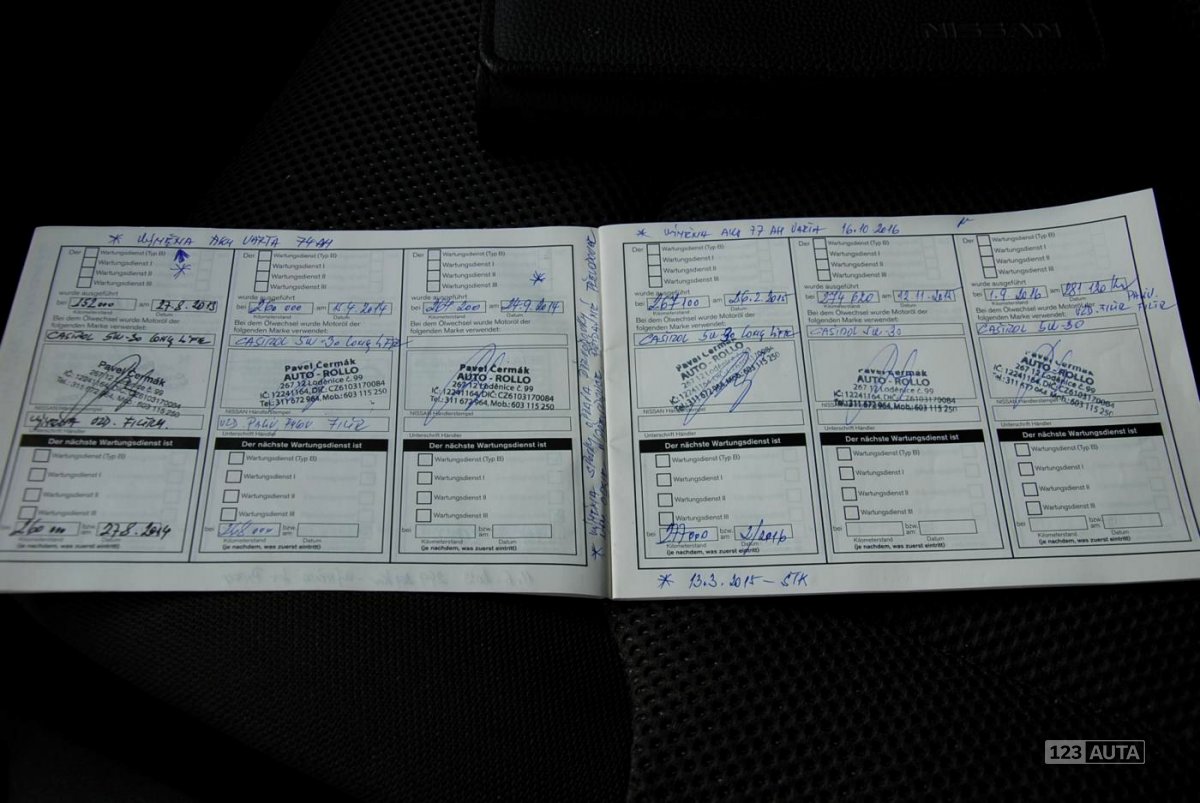 NISSAN
* VÝMĚNA AKU VARTA 74 AH
Der
Wartungsdienst (Typ B)
Wartungsdienst I
Wartungsdienst II
Wartungsdienst III
wurde ausgeführt
bei 252000 am 27.8.2013
Kilometerstand Datum
Bei dem Ölwechsel wurde Motoröl der
folgenden Marke verwendet:
CASTROL 5W-30 LONG LIFE
Pavel Čermák
AUTO - ROLLO
267 12 Loděnice č. 99
IČ: 12241164, DIČ: CZ6103170084
Tel.: 311 672 964, Mob.: 603 115 250
NISSAN Händlerstempel
VÝMĚNA VZD. FILTRU
Der nächste Wartungsdienst ist
Wartungsdienst (Typ B)
Wartungsdienst I
Wartungsdienst II
Wartungsdienst III
bei 260 000 bzw. am 27.8.2014
Kilometerstand Datum
(je nachdem, was zuerst eintritt)
Der
Wartungsdienst (Typ B)
Wartungsdienst I
Wartungsdienst II
Wartungsdienst III
wurde ausgeführt
bei 260 000 am 2014
Kilometerstand Datum
Bei dem Ölwechsel wurde Motoröl der
folgenden Marke verwendet:
CASTROL 5W-30 LONG LIFE
Pavel Čermák
AUTO - ROLLO
267 12 Loděnice č. 99
IČ: 12241164, DIČ: CZ6103170084
Tel.: 311 672 964, Mob.: 603 115 250
NISSAN Händlerstempel
VZD PALIV FILTR
Unterschrift Händler
Der nächste Wartungsdienst ist
Wartungsdienst (Typ B)
Wartungsdienst I
Wartungsdienst II
Wartungsdienst III
bei 268 000 bzw. am
Kilometerstand Datum
(je nachdem, was zuerst eintritt)
Der
Wartungsdienst (Typ B)
Wartungsdienst I
Wartungsdienst II
Wartungsdienst III
wurde ausgeführt
bei am 24.9.2014
Kilometerstand Datum
Bei dem Ölwechsel wurde Motoröl der
folgenden Marke verwendet:
Pavel Čermák
AUTO - ROLLO
267 12 Loděnice č. 99
IČ: 12241164, DIČ: CZ6103170084
Tel.: 311 672 964, Mob.: 603 115 250
NISSAN Händlerstempel
Unterschrift Händler
Der nächste Wartungsdienst ist
Wartungsdienst (Typ B)
Wartungsdienst I
Wartungsdienst II
Wartungsdienst III
bei bzw. am
Kilometerstand Datum
(je nachdem, was zuerst eintritt)
* VÝMĚNA
* VÝMĚNA AKU 77 AH VARTA 16.10 2016
Der
Wartungsdienst (Typ B)
Wartungsdienst I
Wartungsdienst II
Wartungsdienst III
wurde ausgeführt
bei 267 100 am 26.2.2015
Kilometerstand Datum
Bei dem Ölwechsel wurde Motoröl der
folgenden Marke verwendet:
CASTROL 5W 30 LONG LIFE
Pavel Čermák
AUTO - ROLLO
267 12 Loděnice č. 99
IČ: 12241164, DIČ: CZ6103170084
Tel.: 311 672 964, Mob.: 603 115 250
NISSAN Händlerstempel
Unterschrift Händler
Der nächste Wartungsdienst ist
Wartungsdienst (Typ B)
Wartungsdienst I
Wartungsdienst II
Wartungsdienst III
bei 277000 bzw. am 2/2016
Kilometerstand Datum
(je nachdem, was zuerst eintritt)
Der
Wartungsdienst (Typ B)
Wartungsdienst I
Wartungsdienst II
Wartungsdienst III
wurde ausgeführt
bei 274 620 am 12.11.2015
Kilometerstand Datum
Bei dem Ölwechsel wurde Motoröl der
folgenden Marke verwendet:
CASTROL 5W-30
Pavel Čermák
AUTO - ROLLO
267 12 Loděnice č. 99
IČ: 12241164, DIČ: CZ6103170084
Tel.: 311 672 964, Mob.: 603 115 250
NISSAN Händlerstempel
Unterschrift Händler
Der nächste Wartungsdienst ist
Wartungsdienst (Typ B)
Wartungsdienst I
Wartungsdienst II
Wartungsdienst III
bei bzw. am
Kilometerstand Datum
(je nachdem, was zuerst eintritt)
Der
Wartungsdienst (Typ B)
Wartungsdienst I
Wartungsdienst II
Wartungsdienst III
wurde ausgeführt
bei 1.9.2016 am 281 120 km
Kilometerstand Datum
PALIV.
Bei dem Ölwechsel wurde Motoröl der
folgenden Marke verwendet:
VZD. FILTR FILTR
CASTROL 5W-30
Pavel Čermák
AUTO - ROLLO
267 12 Loděnice č. 99
IČ: 12241164, DIČ: CZ6103170084
Tel.: 311 672 964, Mob.: 603 115 250
NISSAN Händlerstempel
Unterschrift Händler
Der nächste Wartungsdienst ist
Wartungsdienst (Typ B)
Wartungsdienst I
Wartungsdienst II
Wartungsdienst III
bei bzw. am
Kilometerstand Datum
(je nachdem, was zuerst eintritt)
* 13.3.2015 - STK
123 AUTA